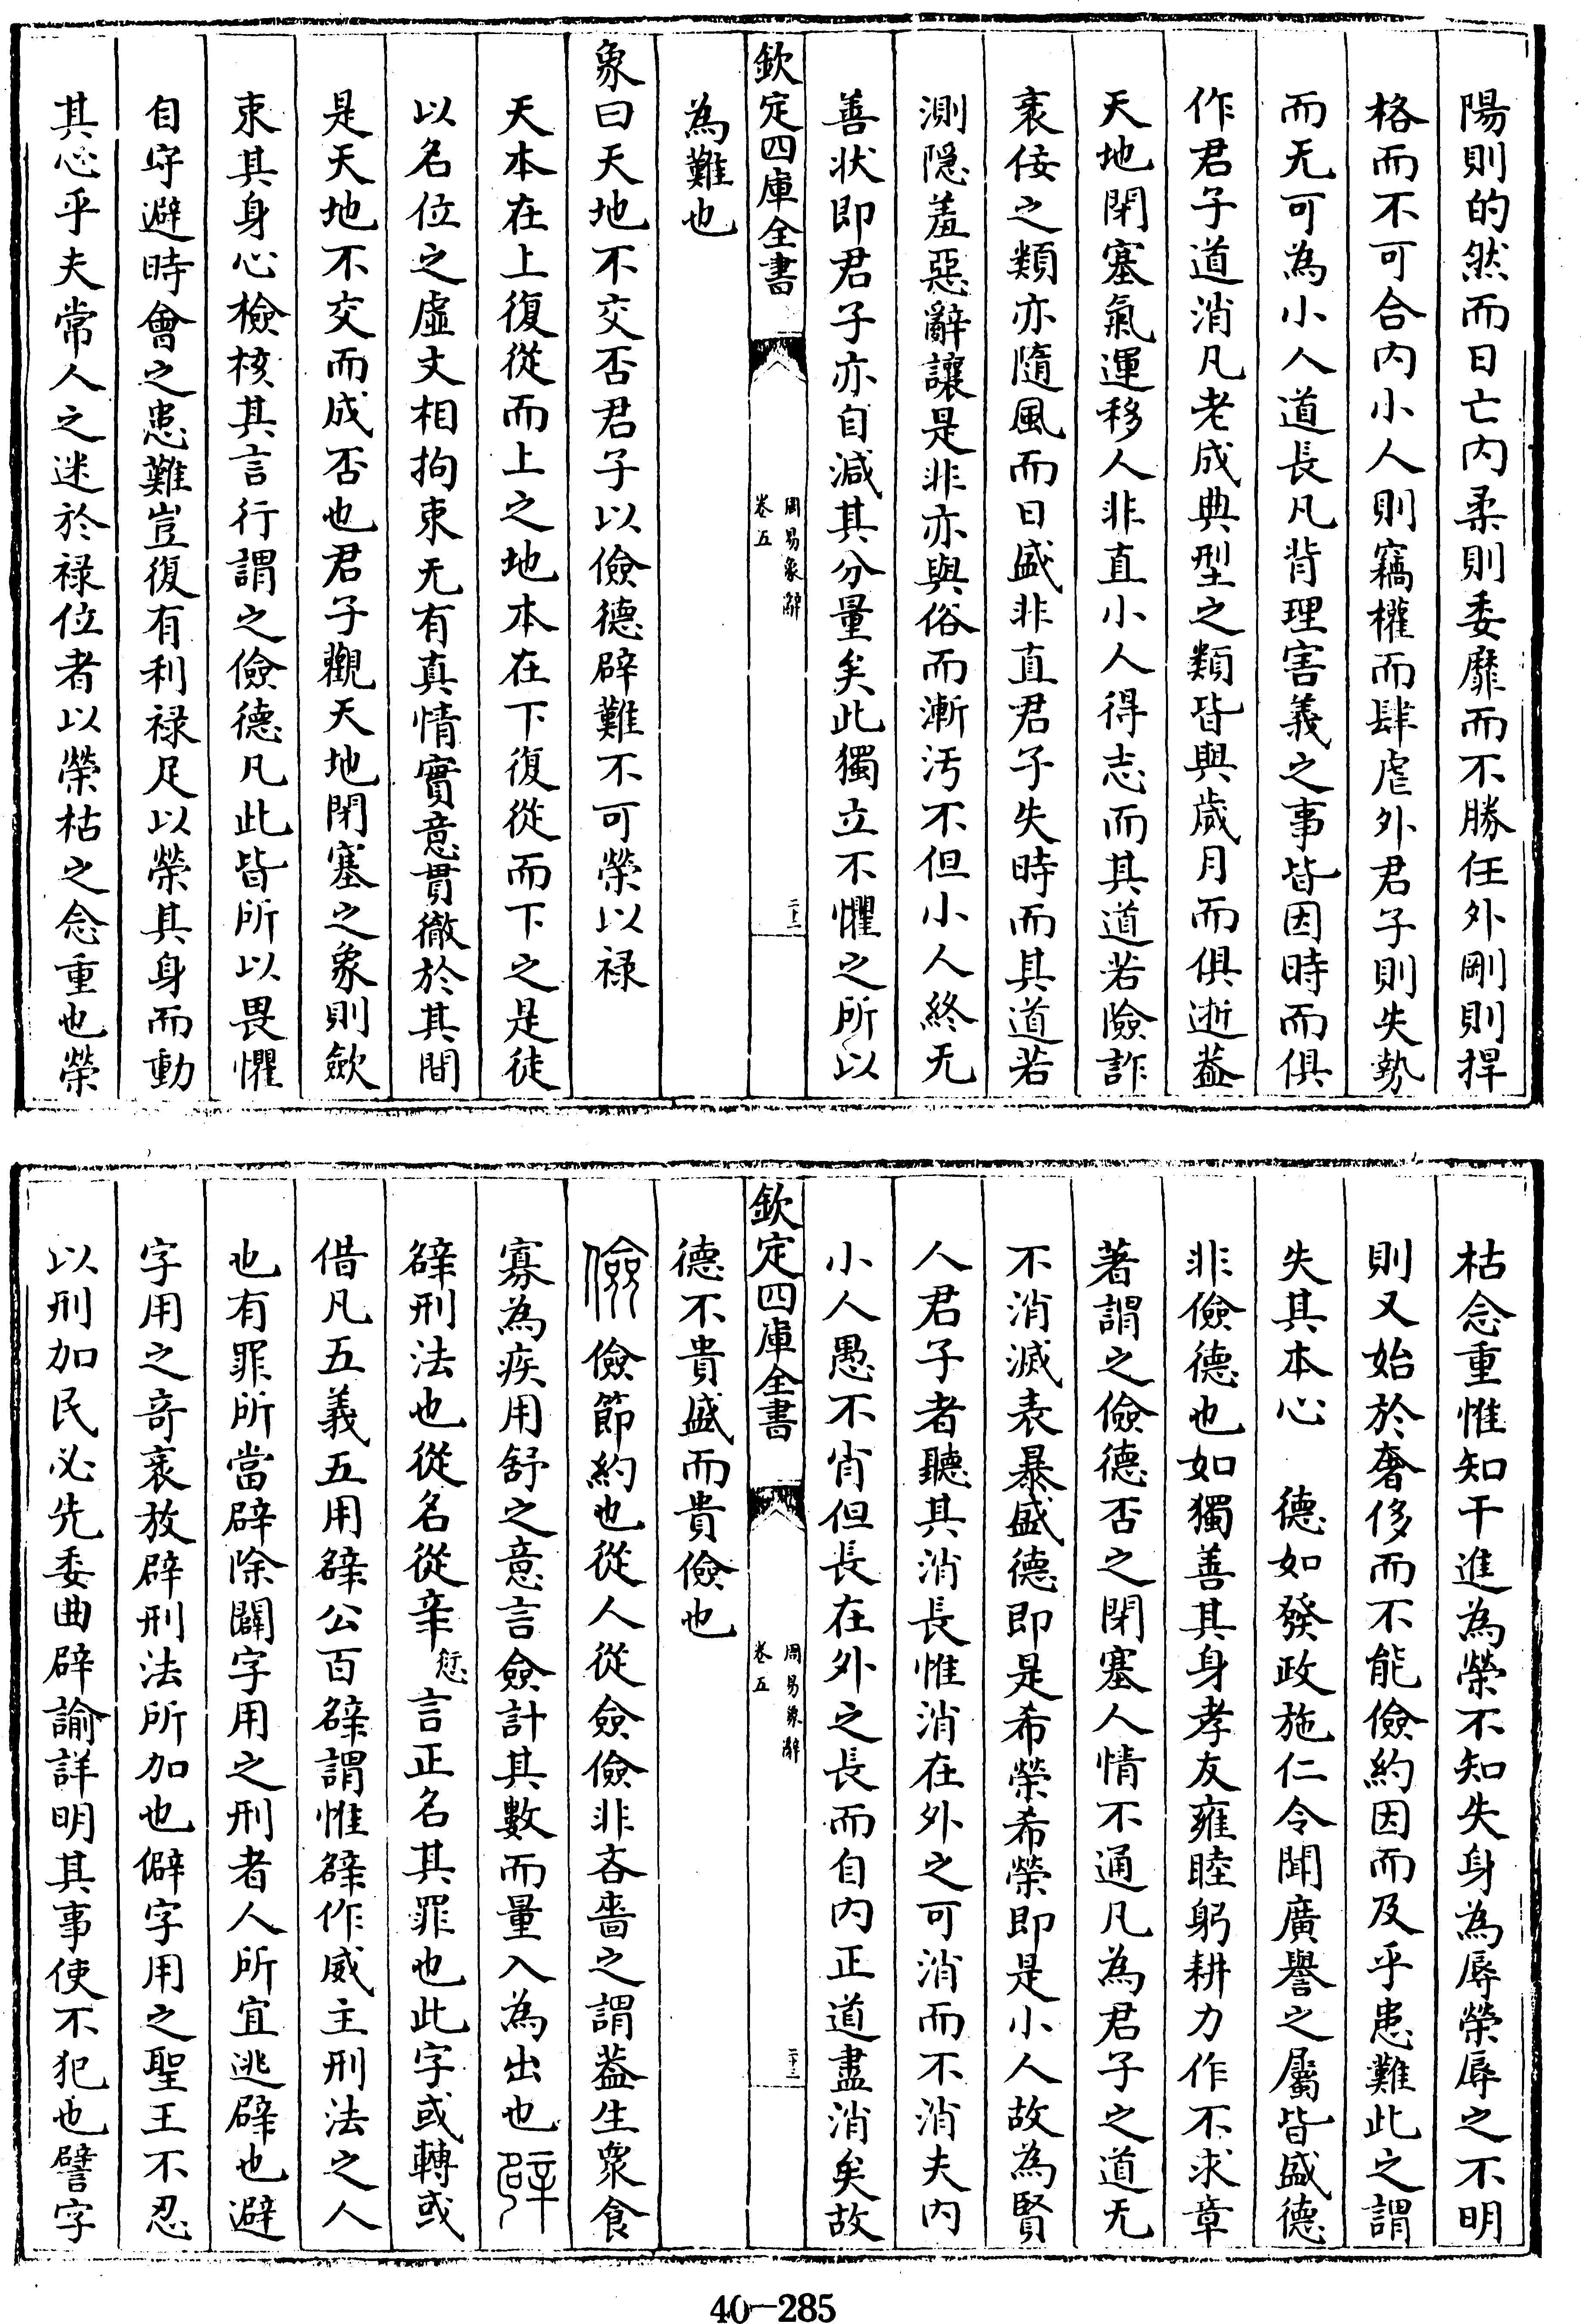 陽則的然而日亡内柔則委靡而不勝任外剛則捍
格而不可合内小人則竊權而肆虐外君子則失勢
而无可為小人道長凡背理害義之事皆因時而俱
作君子道消凡老成典型之類皆與歲月而俱逝葢
天地閉塞氣運移人非直小人得志而其道若險詐
衺佞之類亦隨風而日盛非直君子失時而其道若
測隠羞惡辭讓是非亦與俗而漸汚不但小人終无
善状即君子亦自減其分量矣此獨立不懼之所以
欽定四庫全書
周易象辭
卷五
二十二
為難也
象曰天地不交否君子以儉德辟難不可榮以禄
天本在上復從而上之地本在下復從而下之是徒
以名位之虚文相拘束无有真情實意貫徹於其間
是天地不交而成否也君子觀天地閉塞之象則歛
束其身心檢核其言行謂之儉德凡此皆所以畏懼
自守避時會之患難豈復有利禄足以榮其身而動
其心乎夫常人之迷於禄位者以榮枯之念重也榮
枯念重惟知干進為榮不知失身為辱榮辱之不明
則又始於奢侈而不能儉約因而及乎患難此之謂
失其本心 德如發政施仁令聞廣譽之屬皆盛德
非儉德也如獨善其身孝友雍睦躬耕力作不求章
著謂之儉德否之閉塞人情不通凡為君子之道无
不消滅表暴盛德即是希榮希榮即是小人故為賢
人君子者聽其消長惟消在外之可消而不消夫内
小人愚不肖但長在外之長而自内正道盡消矣故
欽定四庫全書
周易象辭
卷五
二十三
德不貴盛而貴儉也
儉儉節約也從人從僉儉非吝嗇之謂葢生衆食
寡為疾用舒之意言僉計其數而量入為出也辟
辟刑法也從名從辛愆言正名其罪也此字或轉或
借凡五義五用辟公百辟謂惟辟作威主刑法之人
也有罪所當辟除闢字用之刑者人所宜逃辟也避
字用之竒衺放辟刑法所加也僻字用之聖王不忍
以刑加民必先委曲辟諭詳明其事使不犯也譬字
40-285